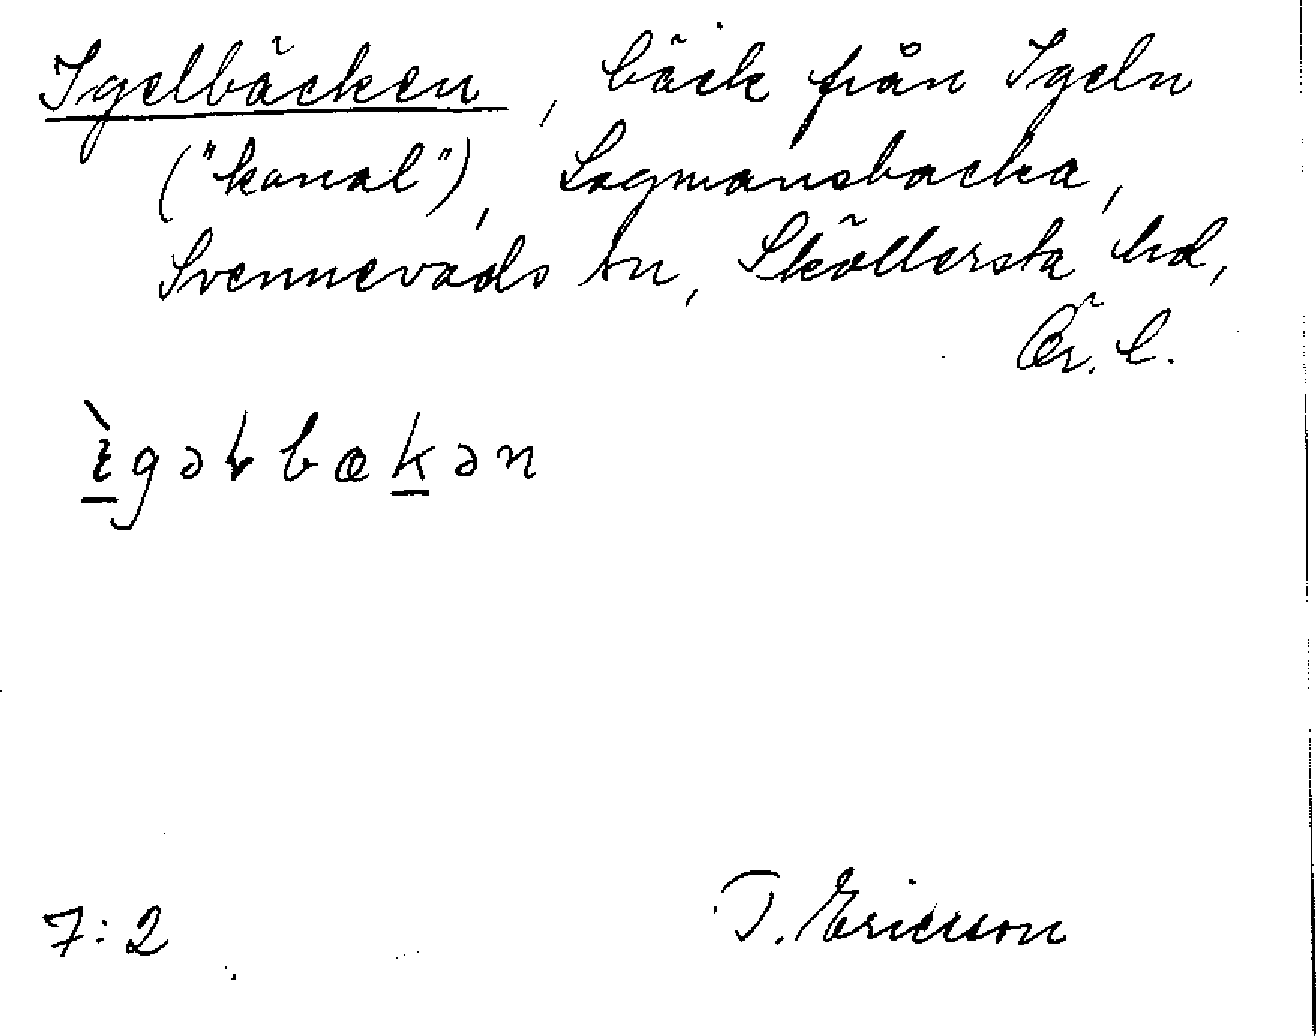 Igelbäcken, bäck från Igeln
("kanal"), Lagmansbacka,
Svennevads sn, Sköllersta hd,
Ör. l.
ìgəɫbækən
7:2
T. Ericsson